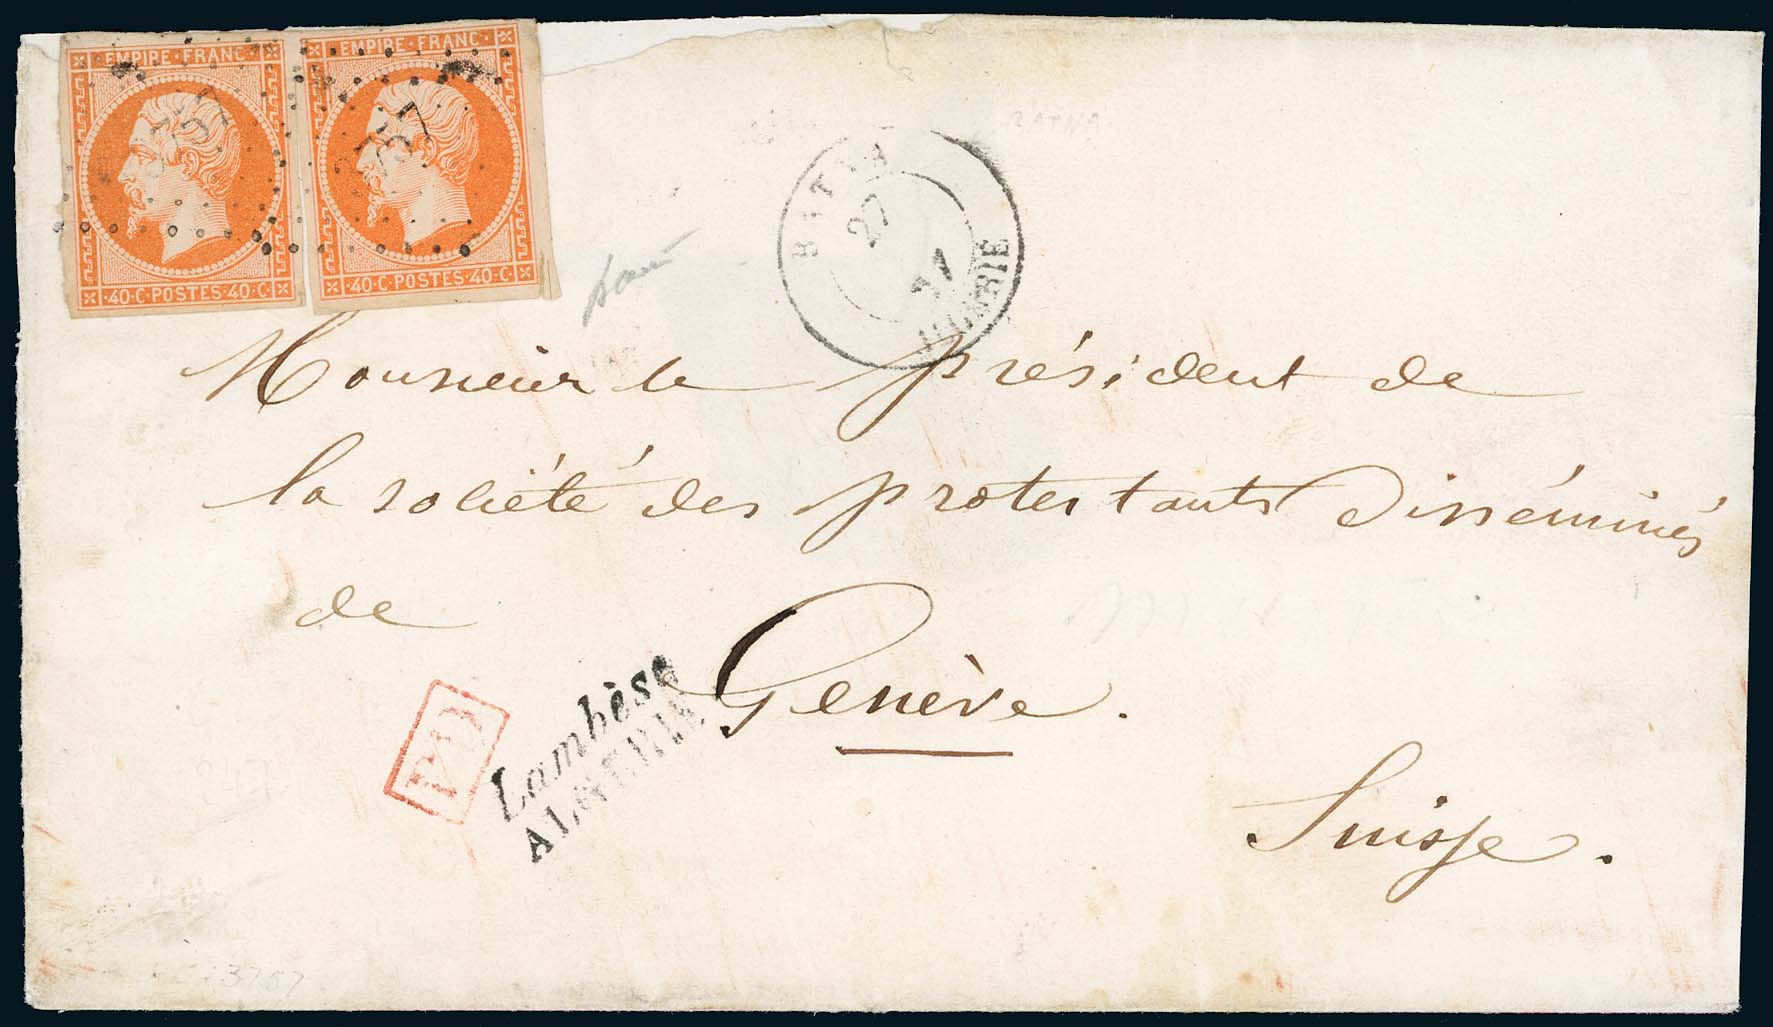 EMPIRE·FRANC·
3757
·40·C·POSTES·40·C·
EMPIRE·FRANC·
3757
·40·C·POSTES·40·C·
BATNA
BATNA
27
ALGERIE
Monsieur le président de
la société des protestants Disséminés
de
Genève.
Suisse.
PD
Lambèse
ALGERIE
3757